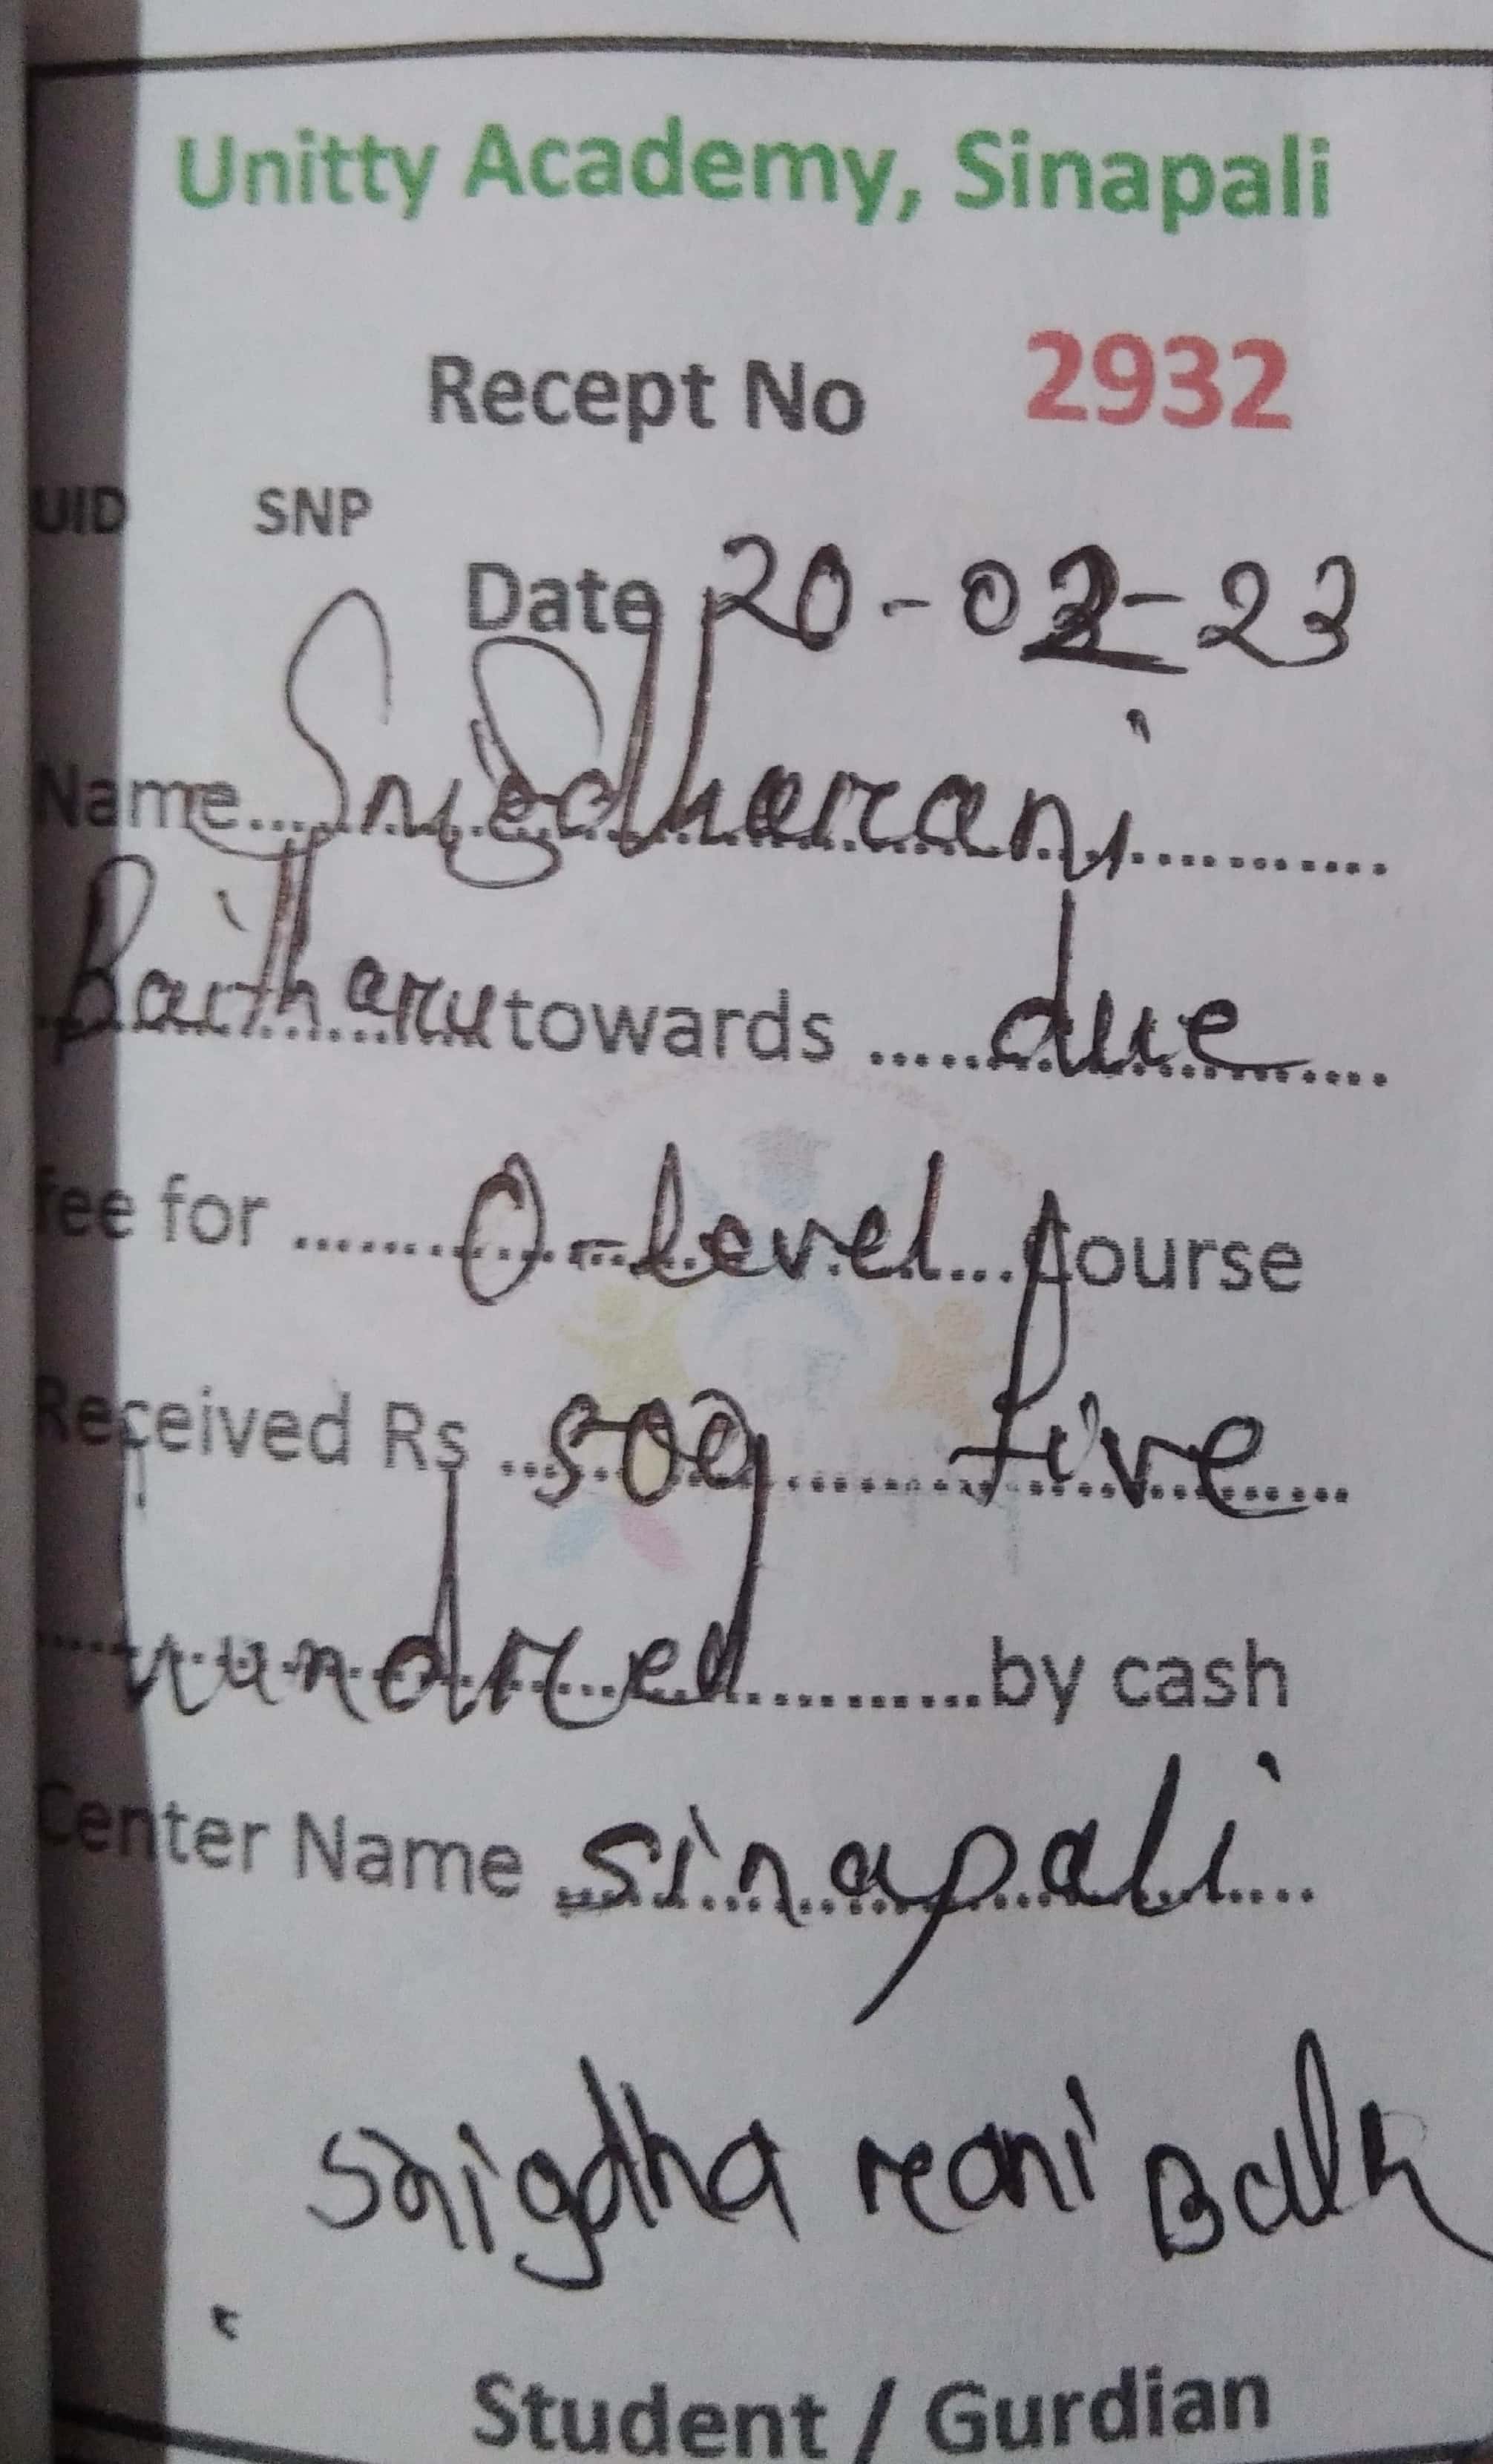 Unitty Academy, Sinapali
Recept No 2932
UID SNP
Date 20-02-23
Name.....Snigdharani..........
Baitharu towards .....due.....
fee for ........O-level...course
Received Rs ...500.......... five
hundred..........by cash
Center Name ..sinapali....
Snigdha rani
Student / Gurdian